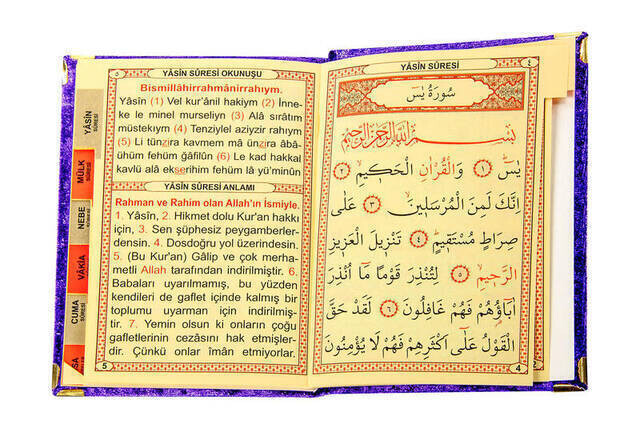 ٥ YÂSİN SÛRESİ OKUNUŞU
Bismillâhirrahmânirrahıym.
Yâsîn (1) Vel kur'ânil hakiym (2) İnne-
ke le minel murseliyn (3) Alâ sırâtım
müstekıym (4) Tenziylel aziyzir rahıym
(5) Li tünzira kavmem mâ ünzira âbâ-
ühüm fehüm gâfilûn (6) Le kad hakkal
kavlü alâ ekserihim fehüm lâ yü'minûn
YÂSİN SÛRESİ ANLAMI
Rahman ve Rahim olan Allah'ın İsmiyle.
1. Yâsîn, 2. Hikmet dolu Kur'an hakkı
için, 3. Sen şüphesiz peygamberler-
densin. 4. Dosdoğru yol üzerindesin.
5. (Bu Kur'an) Gâlip ve çok merha-
metli Allah tarafından indirilmiştir. 6.
Babaları uyarılmamış, bu yüzden
kendileri de gaflet içinde kalmış bir
toplumu uyarman için indirilmiş-
tir. 7. Yemin olsun ki onların çoğu
gafletlerinin cezasını hak etmişler-
dir. Çünkü onlar îman etmiyorlar.
5
YÂSİN
SÛRESİ
MÜLK
SÛRESİ
NEBE
SÛRESİ
VÂKIA
SÛRESİ
CUMA
SÛRESİ
SA
YÂSİN SÛRESİ ٤
سُورَةُ يٰسٓ
بِسْــــمِ اللّٰهِ الرَّحْمٰنِ الرَّحٖيمِ
يٰسٓ ﴿١﴾ وَالْقُرْاٰنِ الْحَكٖيمِ ﴿٢﴾
اِنَّكَ لَمِنَ الْمُرْسَلٖينَ ﴿٣﴾ عَلٰى
صِرَاطٍ مُسْتَقٖيمٍ ﴿٤﴾ تَنْزٖيلَ الْعَزٖيزِ
الرَّحٖيمِ ﴿٥﴾ لِتُنْذِرَ قَوْمًا مَٓا اُنْذِرَ
اٰبَٓاؤُهُمْ فَهُمْ غَافِلُونَ ﴿٦﴾ لَقَدْ حَقَّ
الْقَوْلُ عَلٰٓى اَكْثَرِهِمْ فَهُمْ لَا يُؤْمِنُونَ
4
2